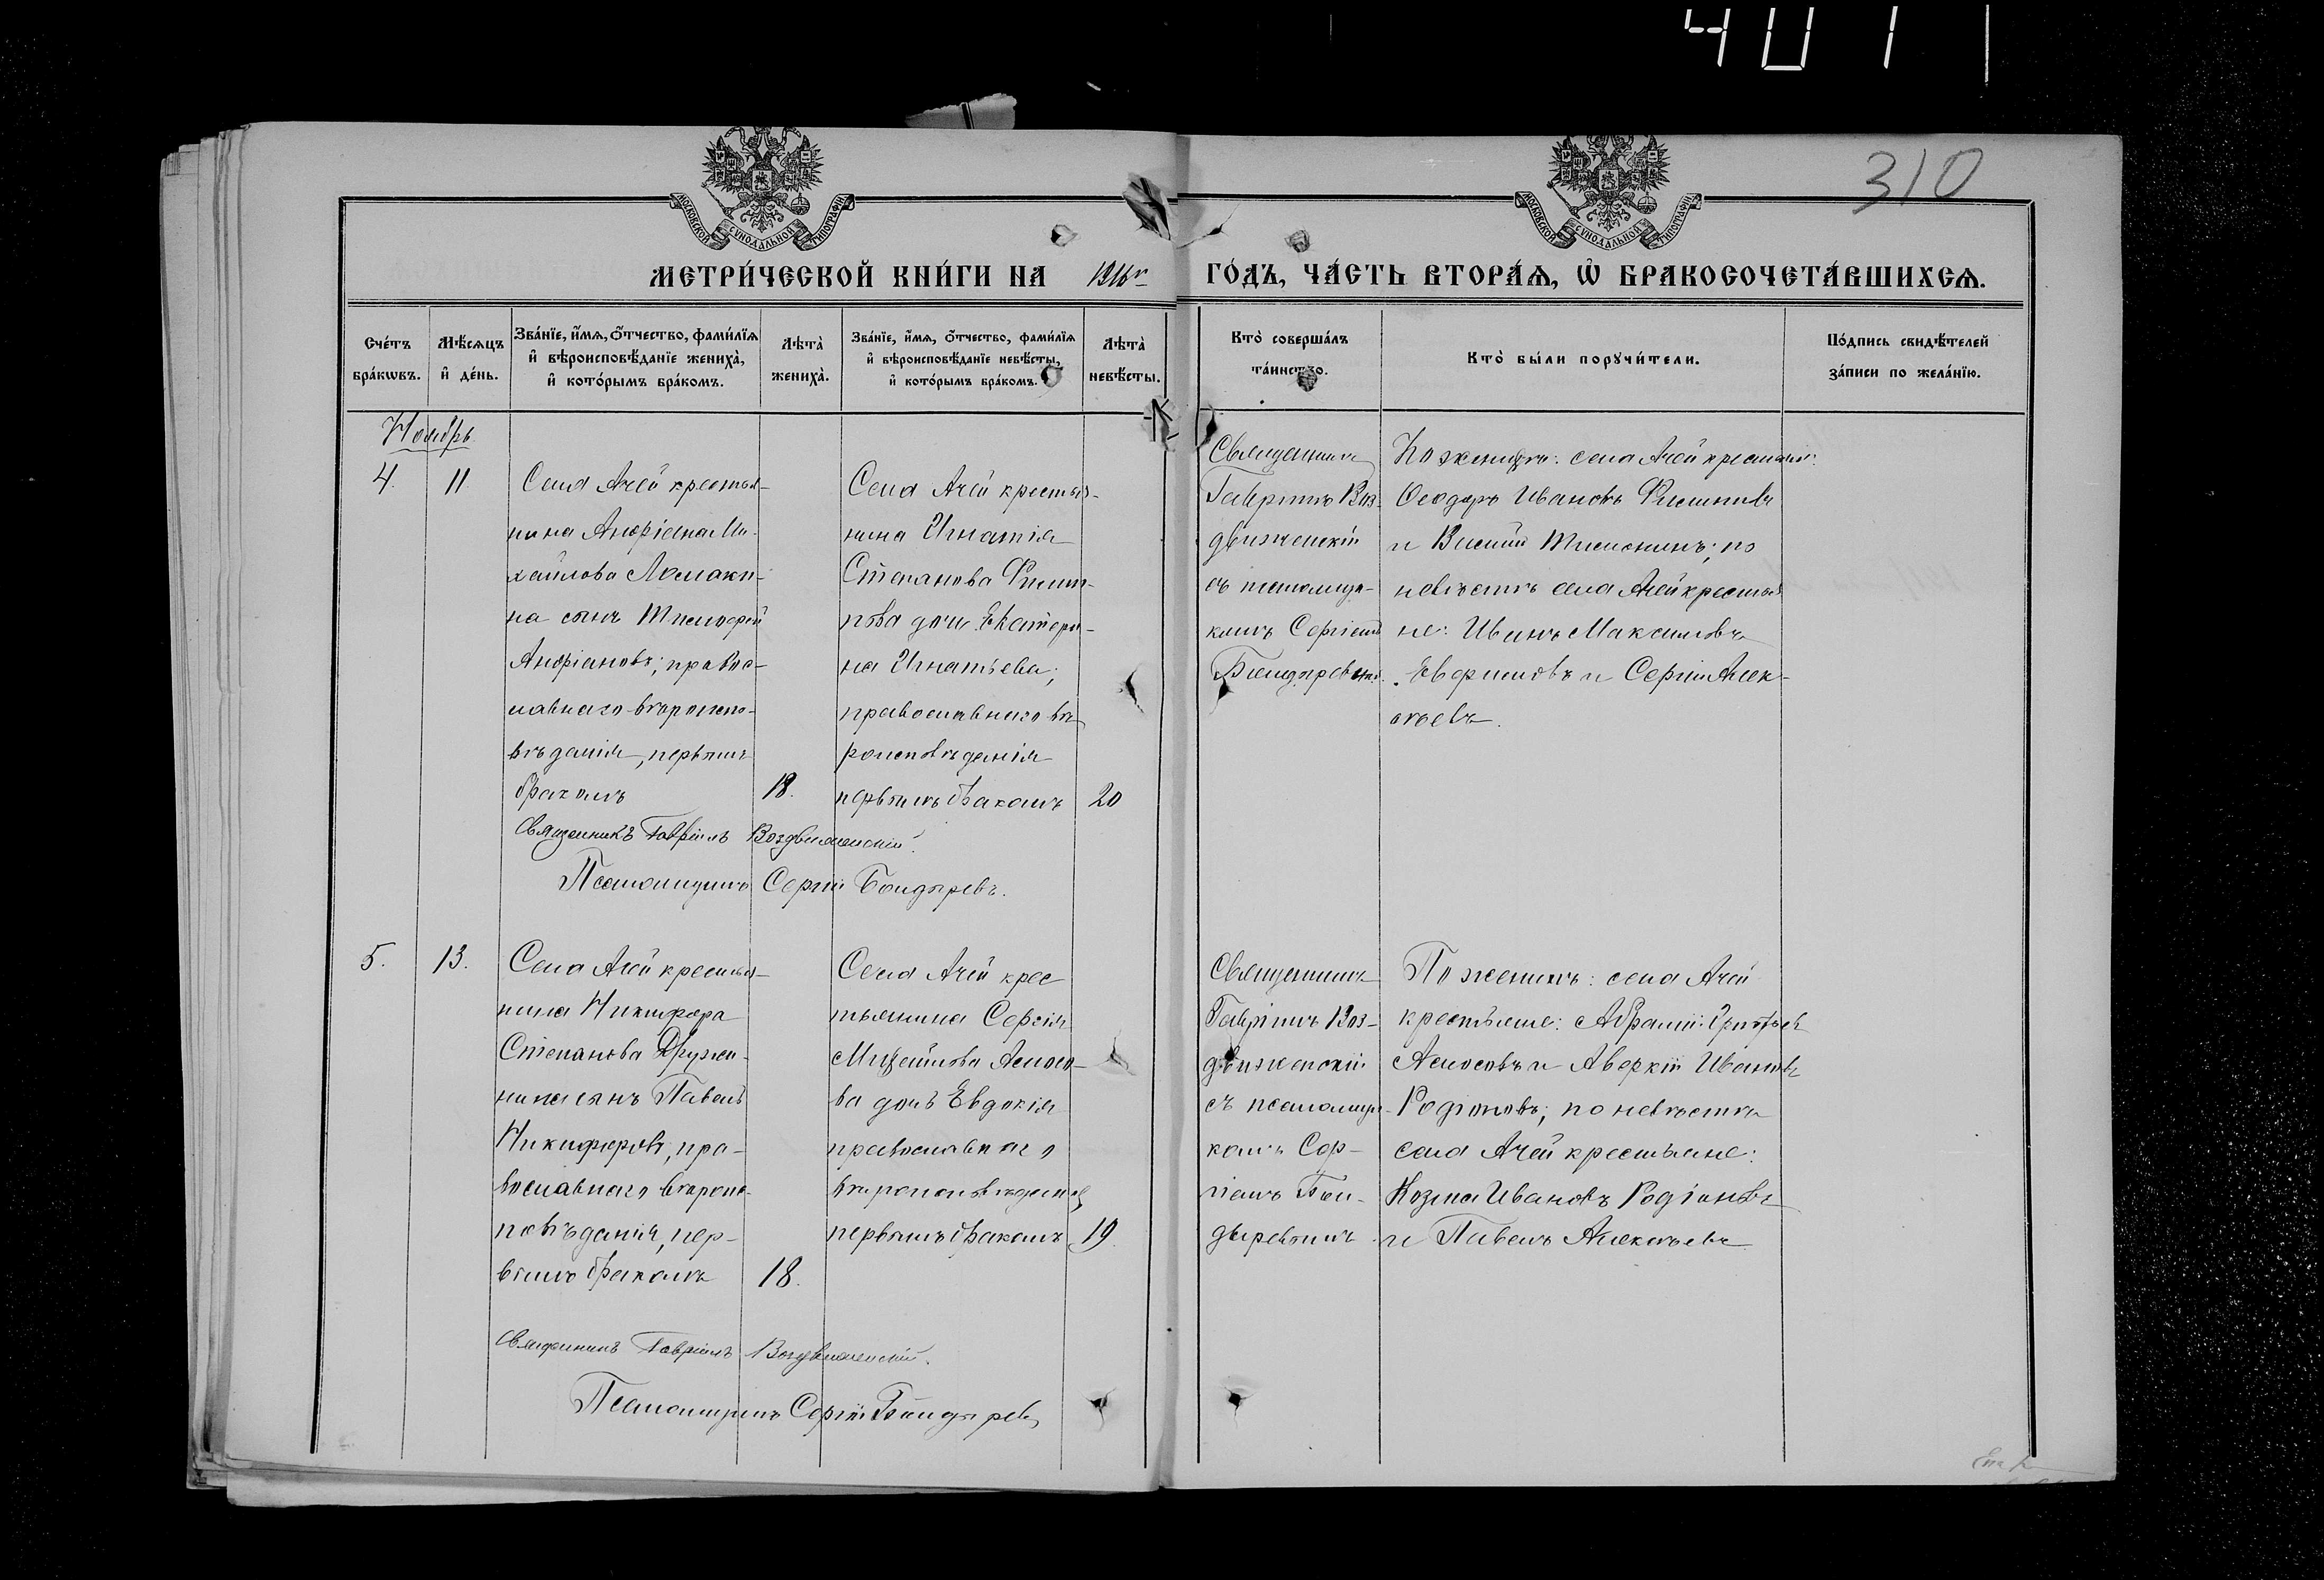 401
310
МОСКОВСКОЙ СѴНОДАЛЬНОЙ ТИПОГРАФІИ
МОСКОВСКОЙ СѴНОДАЛЬНОЙ ТИПОГРАФІИ
МЕТРИ́ЧЕСКОЙ КНИ́ГИ НА 1916 г.
ГО́ДЪ, ЧА́СТЬ ВТОРА́Ѧ, Ѽ БРАКОСОЧЕТА́ВШИХСѦ.
Сче́тъ бра́кѡвъ.
Мѣ́сѧцъ и҆ де́нь.
Зва́нїе, и҆́мѧ, ѻ҆́тчество, фами́лїѧ
и҆ вѣроисповѣ́данїе жениха̀,
и҆ кото́рымъ бра́комъ.
Лѣта̀ жениха̀.
Зва́нїе, и҆́мѧ, ѻ҆́тчество, фами́лїѧ
и҆ вѣроисповѣ́данїе невѣ́сты,
и҆ кото́рымъ бра́комъ.
Лѣта̀ невѣ́сты.
Кто̀ соверша́лъ
та́инство.
Кто̀ бы́ли порꙋчи́тели.
По́дпись свидѣ́телей
за́писи по жела́нїю.
Ноябрь
4.
11
Села Ачей крестья-
нина Андріана Ми-
хайлова Ломаки-
на сынъ Тимофей
Андріановъ; правос-
лавнаго вѣроиспо-
вѣданія, первымъ
бракомъ
18.
Села Ачей крестья-
нина Игнатія
Степанова Филип-
пова дочь Екатери-
на Игнатьева;
православнаго вѣ-
роисповѣданія
первымъ бракомъ
20
Священникъ
Гавріилъ Воз-
движенскій
съ псаломщи-
комъ Сергіемъ
Бондыревымъ.
По женихѣ: села Ачей крестьяне:
Ѳеодоръ Ивановъ Филипповъ
и Василій Тимошкинъ; по
невѣстѣ села Ачей крестья
не: Иванъ Максимовъ
Евдокимовъ и Сергій Алек-
сѣевъ.
Священникъ Гавріилъ Воздвиженскій.
Псаломщикъ Сергій Бондыревъ.
5.
13.
Села Ачей крестья-
нина Никифора
Степанова Дружи-
нина сынъ Павелъ
Никифоровъ, пра-
вославнаго вѣроис-
повѣданія, пер-
вымъ бракомъ
18.
Села Ачей крес
тьянина Сергія
Михайлова Амосо-
ва дочь Евдокія
православнаго
вѣроисповѣданія
первымъ бракомъ
19.
Священникъ
Гавріилъ Воз-
движенскій
съ псаломщи-
комъ Сер-
гіемъ Бон-
дыревымъ
По женихѣ: села Ачей
крестьяне: Абрамій Григорьев
Амосовъ и Аверкій Ивановъ
Родіоновъ; по невѣстѣ
села Ачей крестьяне:
Козма Ивановъ Родіоновъ
и Павелъ Алексѣевъ
Священникъ Гавріилъ Воздвиженскій.
Псаломщикъ Сергій Бондыревъ